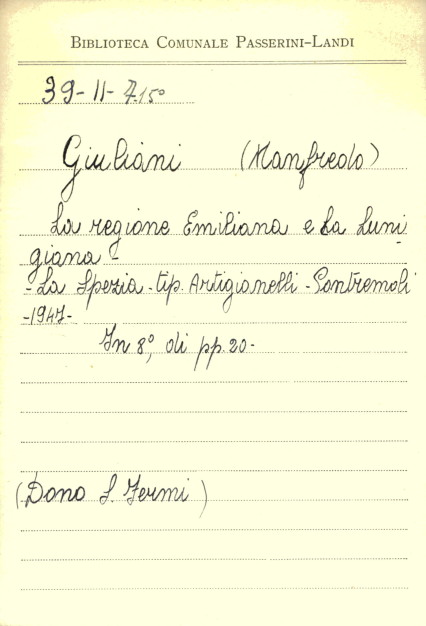 BIBLIOTECA COMUNALE PASSERINI-LANDI
39-11-7.15°
Giuliani (Manfredo)
La regione Emiliana e la Luni
giana -
- La Spezia - tip. Artigianelli - Pontremoli
- 1947 -
In 8°, di pp. 20 -
(Dono S. Fermi)